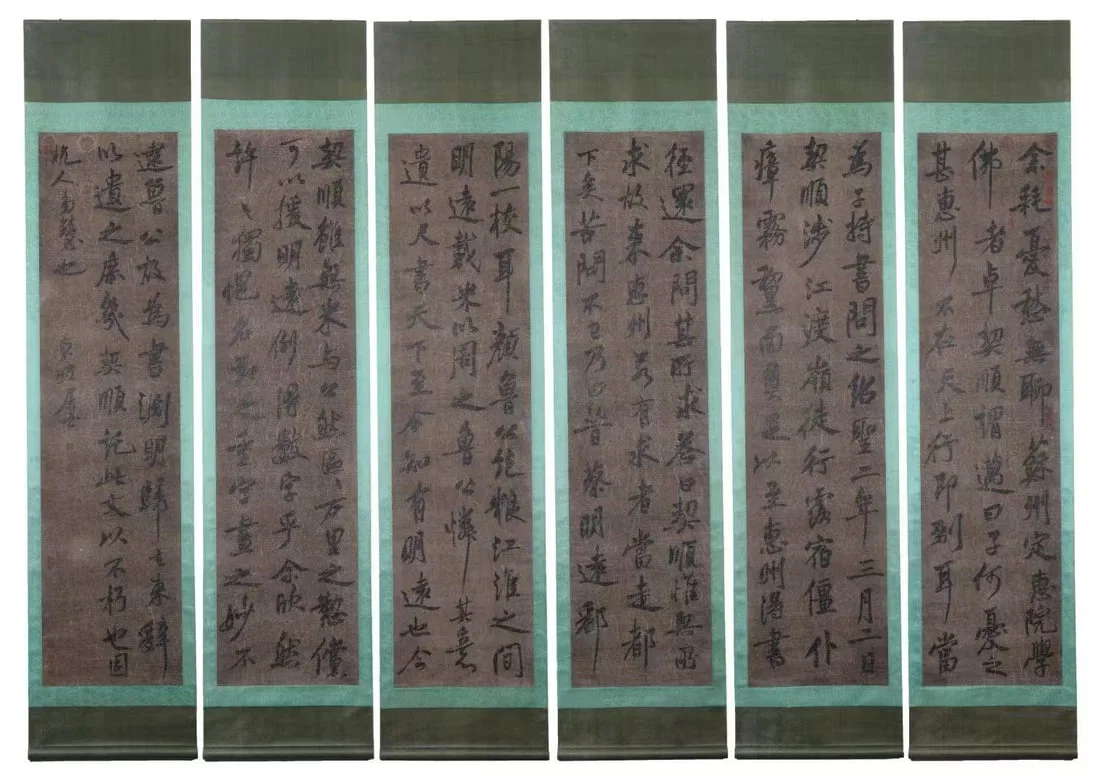 余耗憂愁無聊蘇州定惠院學
佛者卓契順謂邁曰子何憂之
甚惠州不在天上行即到耳當
為子持書問之紹聖二年三月二日
契順涉江渡嶺徒行露宿僵仆
瘴霧黧面繭足以至惠州得書
徑還余問其所求答曰契順惟無所
求故來惠州若有求者當走都
下矣苦問不已乃曰昔蔡明遠鄱
陽一校耳顏魯公絕糧江淮之間
明遠載米以周之魯公憐其意
遺以尺書天下至今知有明遠也今
契順雖無米與公然區々万里之懃儻
可以援明遠例得數字乎余欣然
許之獨愧名節之重字畫之妙不
逮魯公故為書淵明歸去來辭
以遺之庶幾契順託此文以不朽也因
杭人也